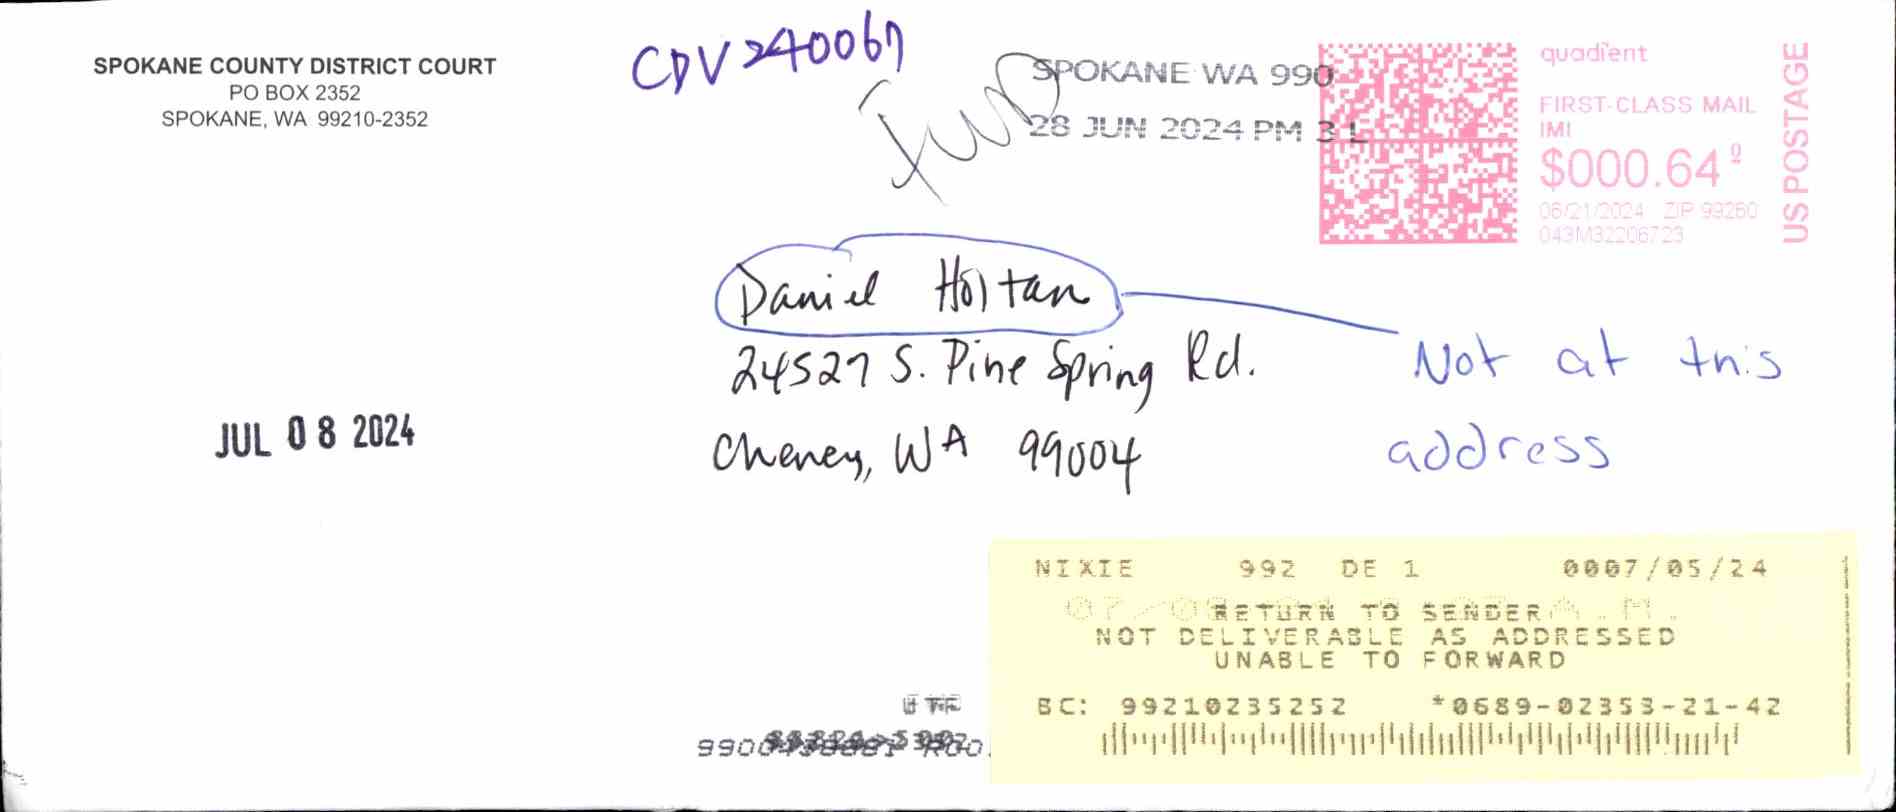 SPOKANE COUNTY DISTRICT COURT
PO BOX 2352
SPOKANE, WA 99210-2352
CDV240067
SPOKANE WA 990
28 JUN 2024 PM 3 L
quadient
FIRST-CLASS MAIL
IMI
$000.64⁰
06/21/2024 ZIP 99260
043M32206723
US POSTAGE
Daniel Holtan
24527 S. Pine Spring Rd.
Cheney, WA 99004
Not at this
address
JUL 08 2024
NIXIE 992 DE 1 0007/05/24
RETURN TO SENDER
NOT DELIVERABLE AS ADDRESSED
UNABLE TO FORWARD
UTF
BC: 99210235252 *0689-02353-21-42